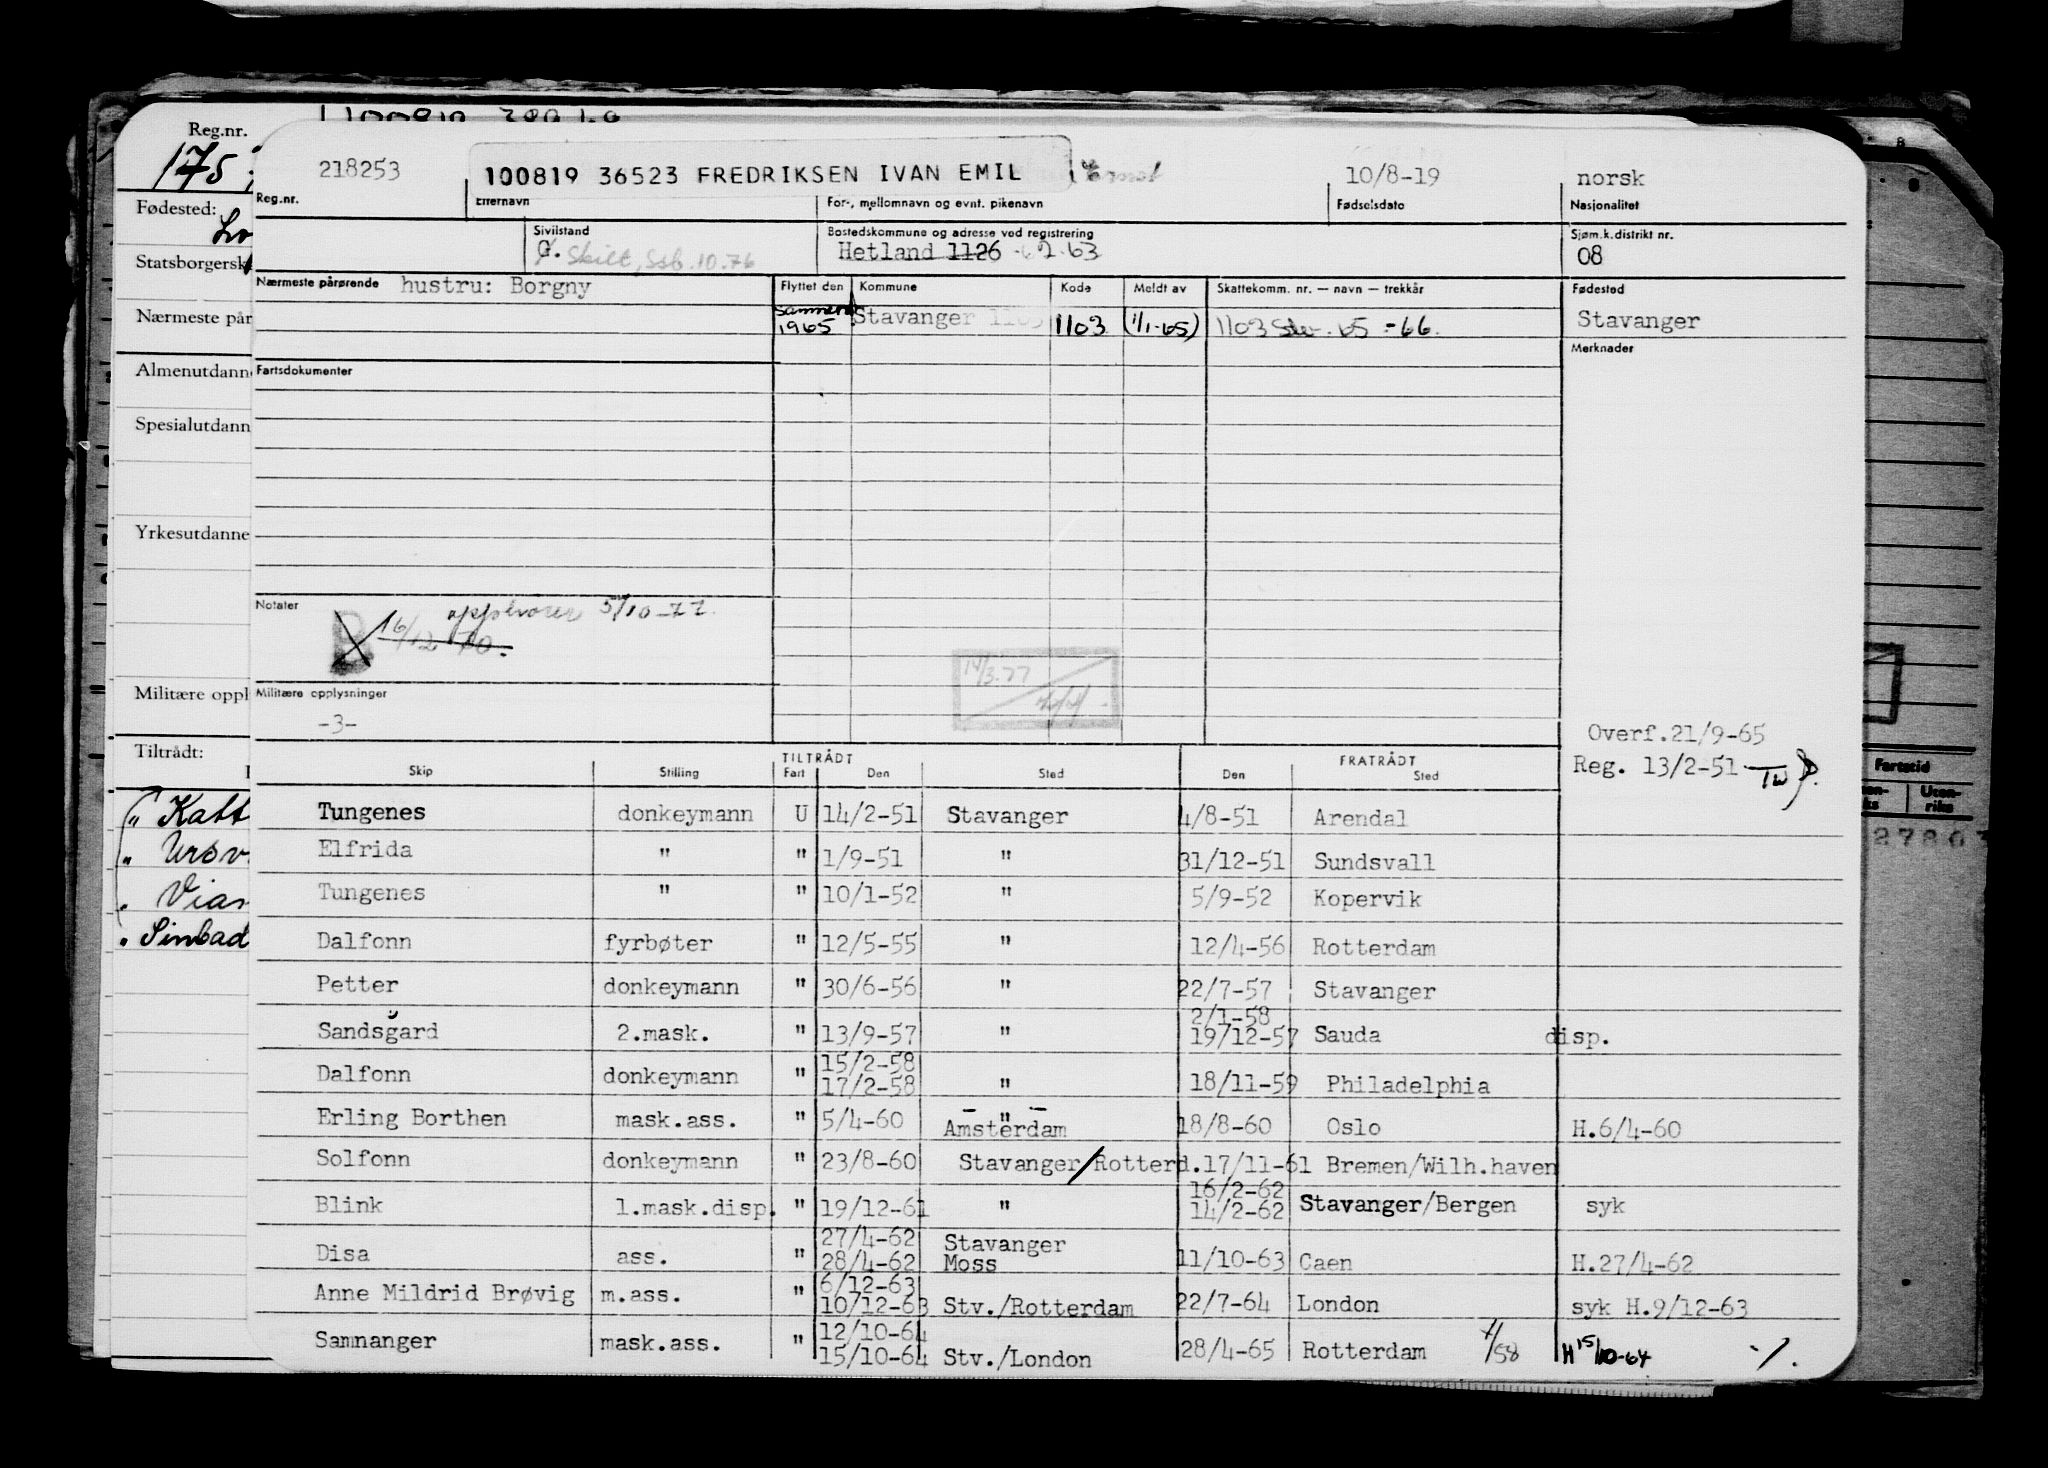 Reg.nr.
175
Fødested:
Statsborgersk
Nærmeste pår
Almenutdann
Spesialutdann
Yrkesutdanne
Militære oppl
Tiltrådt:
" Katt
" Ursv
" Vian
" Sinbad
218253 100819 36523 FREDRIKSEN IVAN EMIL 10/8-19 norsk
Reg.nr. Etternavn For-, mellomnavn og evnt. pikenavn Fødselsdato Nasjonalitet
Sivilstand Bostedskommune og adresse ved registrering Sjøm.k.distrikt nr.
G. Skilt, Ssb.10.76 Hetland 1126 2.63 08
Nærmeste pårørende hustru: Borgny Flyttet den Kommune Kode Meldt av Skattekomm. nr. — navn — trekkår Fødested
sammen 1965 Stavanger 1103 1103 (1/1-65) 1103 Stv. 65 -66. Stavanger
Merknader
Fartsdokumenter
Notater
opphører 5/10-77.
B 16/12 70.
14/3.77
Militære opplysninger
-3-
Overf.21/9-65
Reg. 13/2-51
TILTRÅDT FRATRÅDT
Skip Stilling Fart Den Sted Den Sted
Tungenes donkeymann U 14/2-51 Stavanger 4/8-51 Arendal
Elfrida " " 1/9-51 " 31/12-51 Sundsvall
Tungenes " " 10/1-52 " 5/9-52 Kopervik
Dalfonn fyrbøter " 12/5-55 " 12/4-56 Rotterdam
Petter donkeymann " 30/6-56 " 22/7-57 Stavanger
2/1-58
Sandsgard 2.mask. " 13/9-57 " 19/12-57 Sauda disp.
15/2-58
Dalfonn donkeymann " 17/2-58 " 18/11-59 Philadelphia
- " -
Erling Borthen mask.ass. " 5/4-60 Amsterdam 18/8-60 Oslo H.6/4-60
Solfonn donkeymann " 23/8-60 Stavanger/Rotterd. 17/11-61 Bremen/Wilh.haven
16/2-62
Blink 1.mask.disp. " 19/12-61 " 14/2-62 Stavanger/Bergen syk
27/4-62 Stavanger
Disa ass. " 28/4-62 Moss 11/10-63 Caen H.27/4-62
6/12-63
Anne Mildrid Brøvig m.ass. " 10/12-63 Stv./Rotterdam 22/7-64 London syk H.9/12-63
12/10-64
Samnanger mask.ass. " 15/10-64 Stv./London 28/4-65 Rotterdam 7/58 H 15/10-64 ./.
Fartstid
Uten-
riks